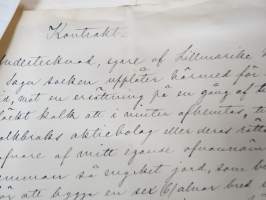 Kontrakt.
Undertecknad, egare af Lillmarika
Saga socken upplåter härmed för
tid, mot en ersättning på en gång af
släckt kalk att i vinter afhemtas, t
Kalkbruks aktiebolag eller deras rätts
afvare af mitt egande ofvannäm
hemman så mycket jord, som be
för att bygga en sex fjalnar bred s